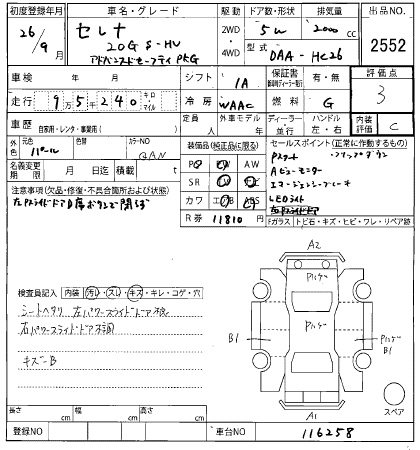 初度登録年月 車名・グレード 駆動 ドア数・形状 排気量 出品NO.
26年 9月 セレナ 2WD・4WD 5W 2000cc 2552
20G S-HV
アドバンスドセーフティPKG 型式 DAA-HC26
車検 年 月 シフト IA 保証書 有・無 評価点
走行 95240 キロ・マイル 冷房 WAAC 燃料 G 3
車歴 自家用・レンタ・事業用( ) 定員 人 外車モデル 年 ディーラー 並行 ハンドル 左・右 内装評価 C
外色 元色 パール 色替 カラーNO QAN
装備品(純正品に限る) セールスポイント(正常に作動するもの)
名義変更期限 月 日迄 積載 t
PS PW AW
SR
カワ エアB ABS
R券 11810
Pスタート ・フリップダウン
Aビューモニター
エマージェンシーブレーキ
LEDライト
注意事項(欠品・修復・不具合箇所および状態)
Fガラス トビ石・キズ・ヒビ・ワレ・リペア跡
検査員記入 内装 汚レ・スレ・キズ・キレ・コゲ・穴
シートヘタリ 左パワースライドドア
右パワースライドドア不調
キズーB
A2
B1
B1
A1
スペア
長さ cm 幅 cm 高さ cm
登録NO 車台NO 116258